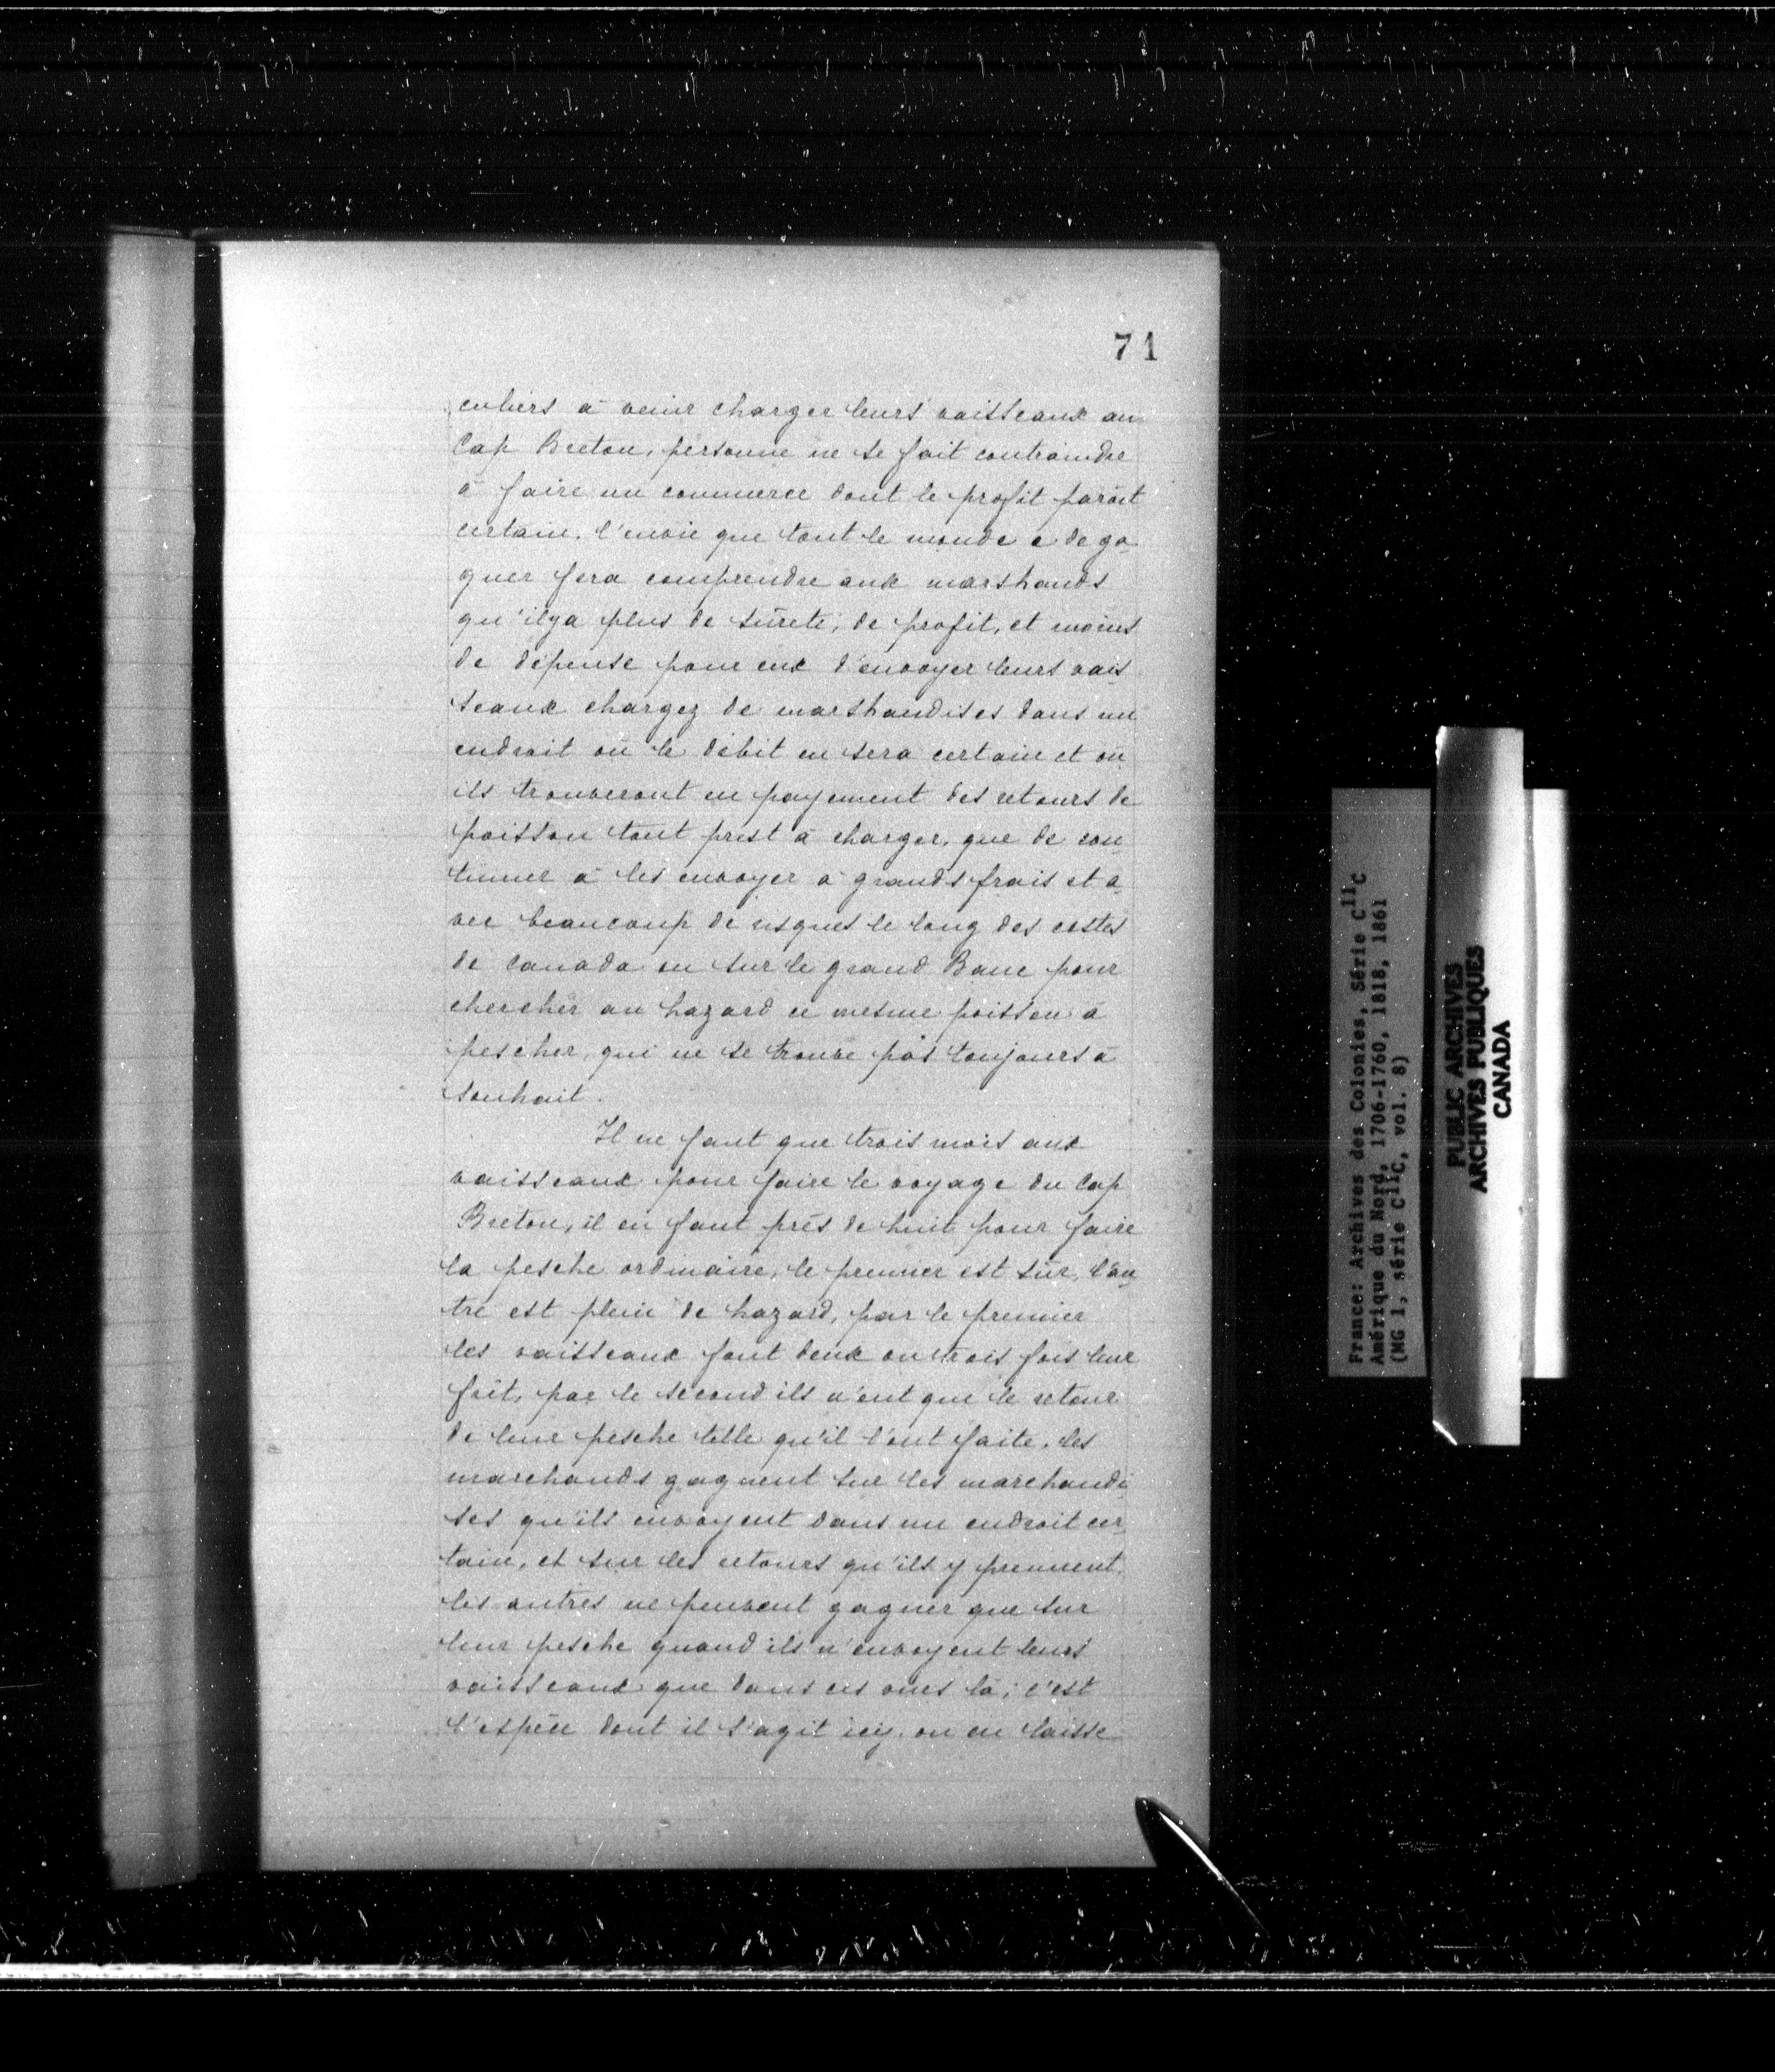 71
culiers à venir charger leurs vaisseaux au
Cap Breton, personne ne se fait contraindre
à faire un commerce dont le profit paroit
certain. l'envie que tout le monde a de ga-
gner fera comprendre aux marshands
qu'il y a plus de sûreté, de profit, et moins
de dépense pour eux d'envoyer leurs vais-
seaux chargez de marshandises dans un
endroit où le débit en sera certain et où
ils trouveront en payement des retours de
poisson tout prest à charger, que de con-
tinuer à les envoyer à grands frais et a-
vec beaucoup de risques le long des costes
de Canada ou sur le grand Banc pour
chercher au hazard ce mesme poisson à
pescher, qui ne se trouve pas toujours à
souhait.
Il ne faut que trois mois aux
vaisseaux pour faire le voyage du Cap
Breton, il en faut près de huit pour faire
la pesche ordinaire, le premier est sûr, l'au-
tre est plein de hazard, par le premier
les vaisseaux font deux ou trois fois leur
frêt, par le second ils n'ont que le retour
de leur pesche telle qu'il l'ont faite. les
marchands gagnent sur les marchandi-
ses qu'ils envoyent dans un endroit cer-
tain, et sur les retours qu'ils y prennent.
les autres ne peuvent gagner que sur
leur pesche quand ils n'envoyent leurs
vaisseaux que dans ces vues là; c'est
l'espèce dont il s'agit icy. on en laisse
France: Archives des Colonies, Série C11C
Amérique du Nord, 1706-1760, 1818, 1861
(MG 1, série C11C, vol. 8)
PUBLIC ARCHIVES
ARCHIVES PUBLIQUES
CANADA